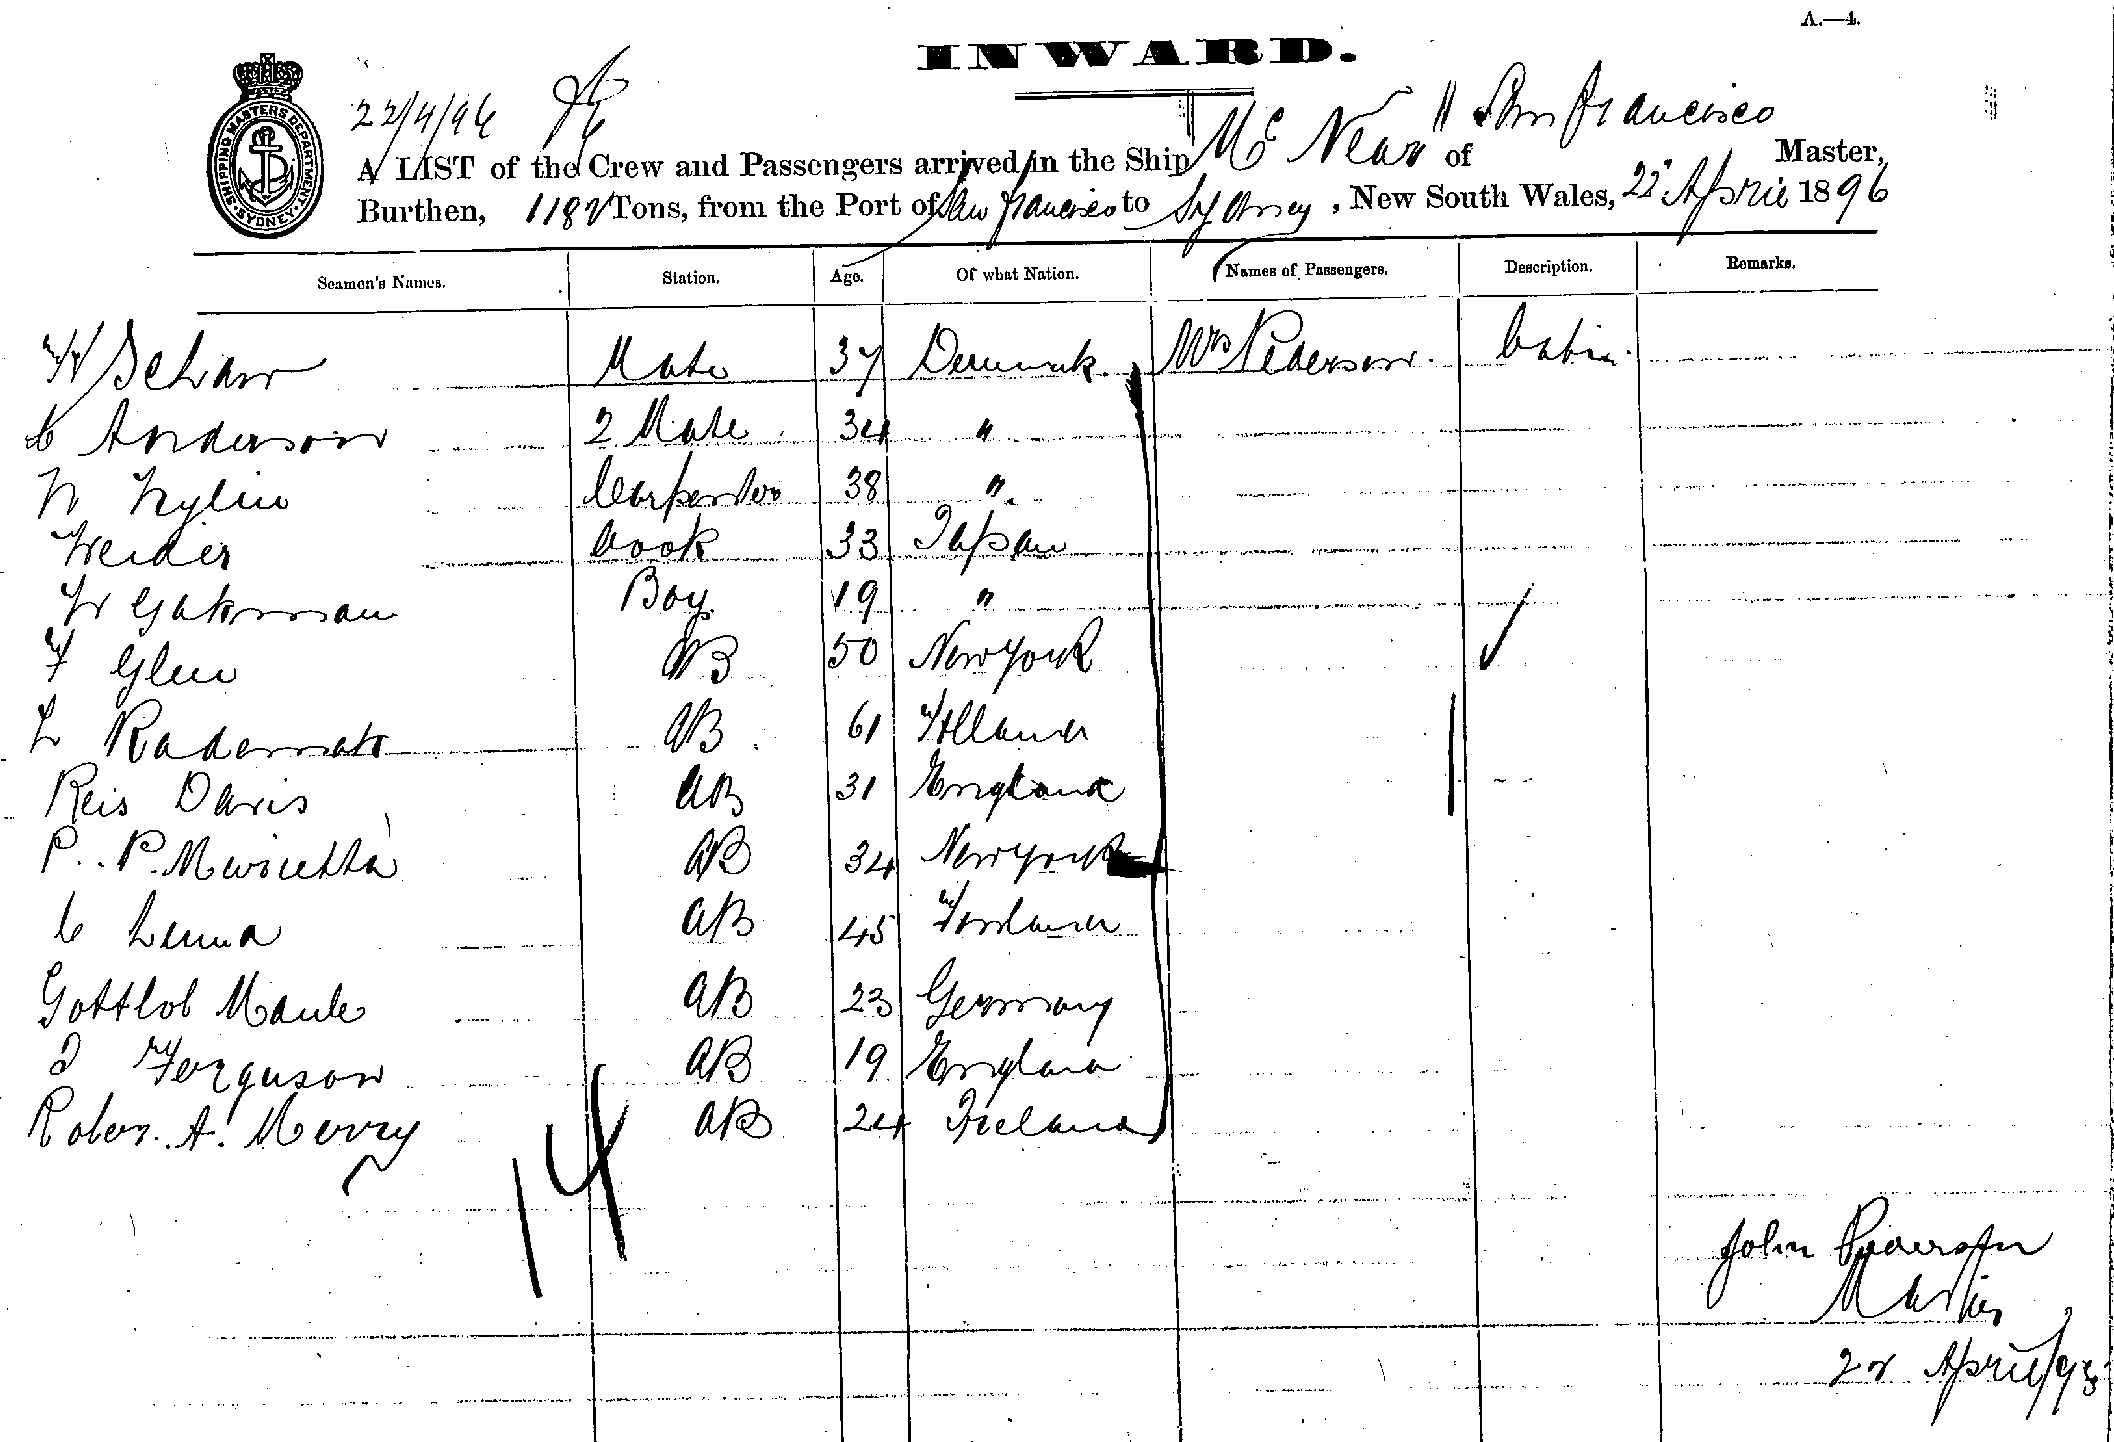 A.—4.
INWARD.
SHIPPING MASTERS DEPARTMENT. SYDNEY.
22/4/96
Mc Near " San Francisco
A LIST of the Crew and Passengers arrived in the Ship of Master,
Burthen, 1182 Tons, from the Port of San Francisco to Sydney, New South Wales, 22 April 1896
Seamen's Names. Station. Age. Of what Nation. Names of Passengers. Description. Remarks.
Mate 37 Denmark. Mrs Pederson. Cabin.
C Anderson 2 Mate 34 "
N Nylin Carpenter 38 "
Cook 33 Japan
Boy 19 "
F Glen AB 50 New York
L AB 61 Holland
Reis Davis AB 31 England
P. P. AB 34 New York
C AB 45
Gottlob Maule AB 23 Germany
J Ferguson AB 19 England
Rober. A. Merry AB 24 Ireland
14
John Pedersen
Master
22 April/96